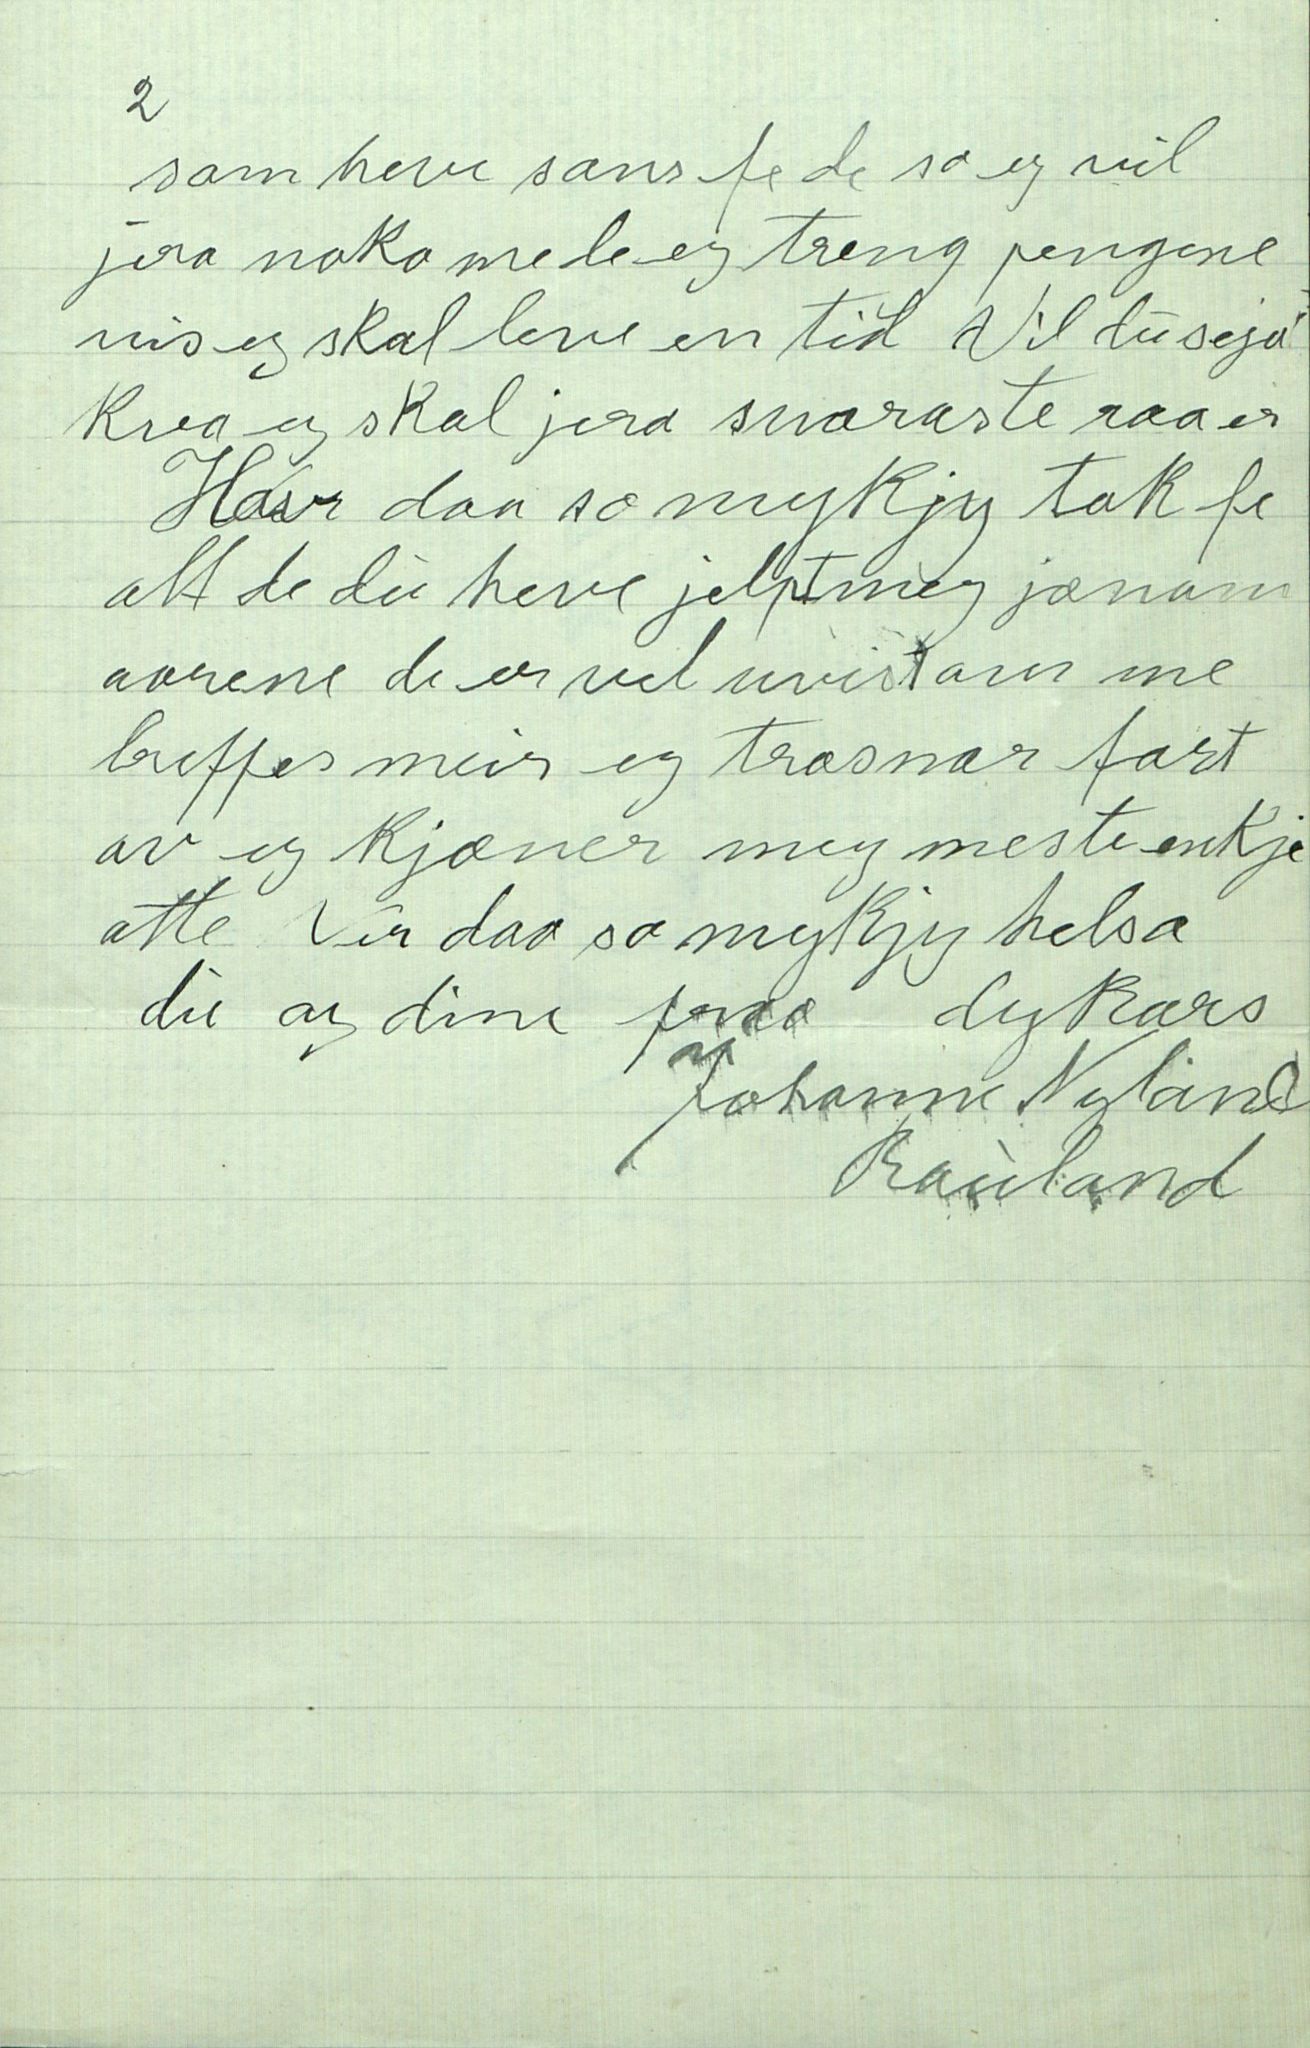 2
som heve sans fe de so eg vil
jera noko me de eg treng pengene
vis eg skal leve en tid Vil du seja
kva eg skal jera snaraste raa er
Hav daa so mykjy tak fe
alt de du heve jelpt meg jænom
aarene de er vel uvist om me
treffes meir eg trosnar fort
av eg kjæner meg meste enkje
atte Ver daa so mykjy helsa
du og dine fraa dykars
Johanne Nyland
Rauland